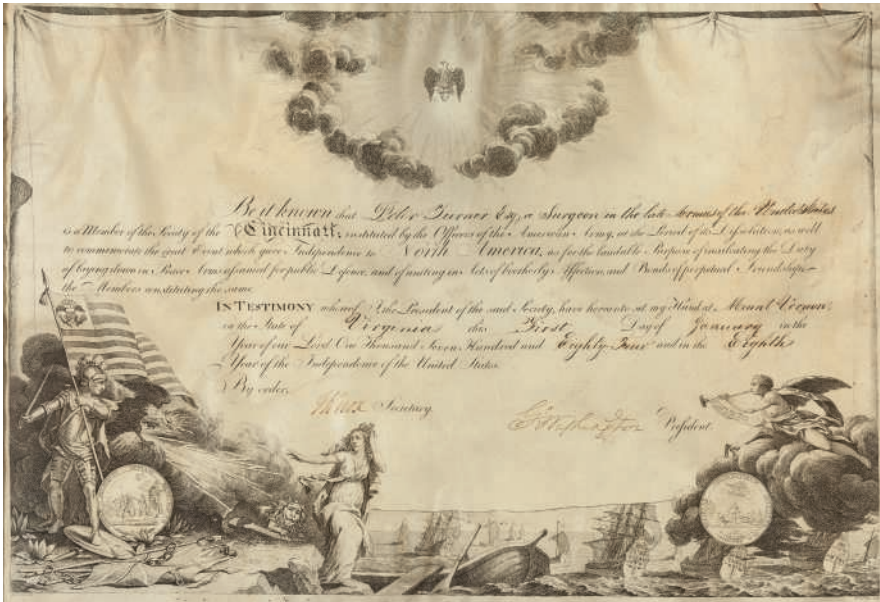 Be it known that Peter Turner Esq., a Surgeon in the late Armies of the United States
is a Member of the Society of the Cincinnati, instituted by the Officers of the American Army, at the Period of its Dissolution, as well
to commemorate the great Event which gave Independence to North America, as for the laudable Purpose of inculcating the Duty
of laying down in Peace Arms assumed for public Defence, and of uniting in Acts of brotherly Affection, and Bonds of perpetual Friendship
the Members constituting the same.
IN TESTIMONY whereof I the President of the said Society, have hereunto set my Hand at Mount Vernon
in the State of Virginia this First Day of January in the
Year of our Lord One Thousand Seven Hundred and Eighty Four and in the Eighth
Year of the Independence of the United States.
By order,
HKnox Secretary.
G. Washington President.